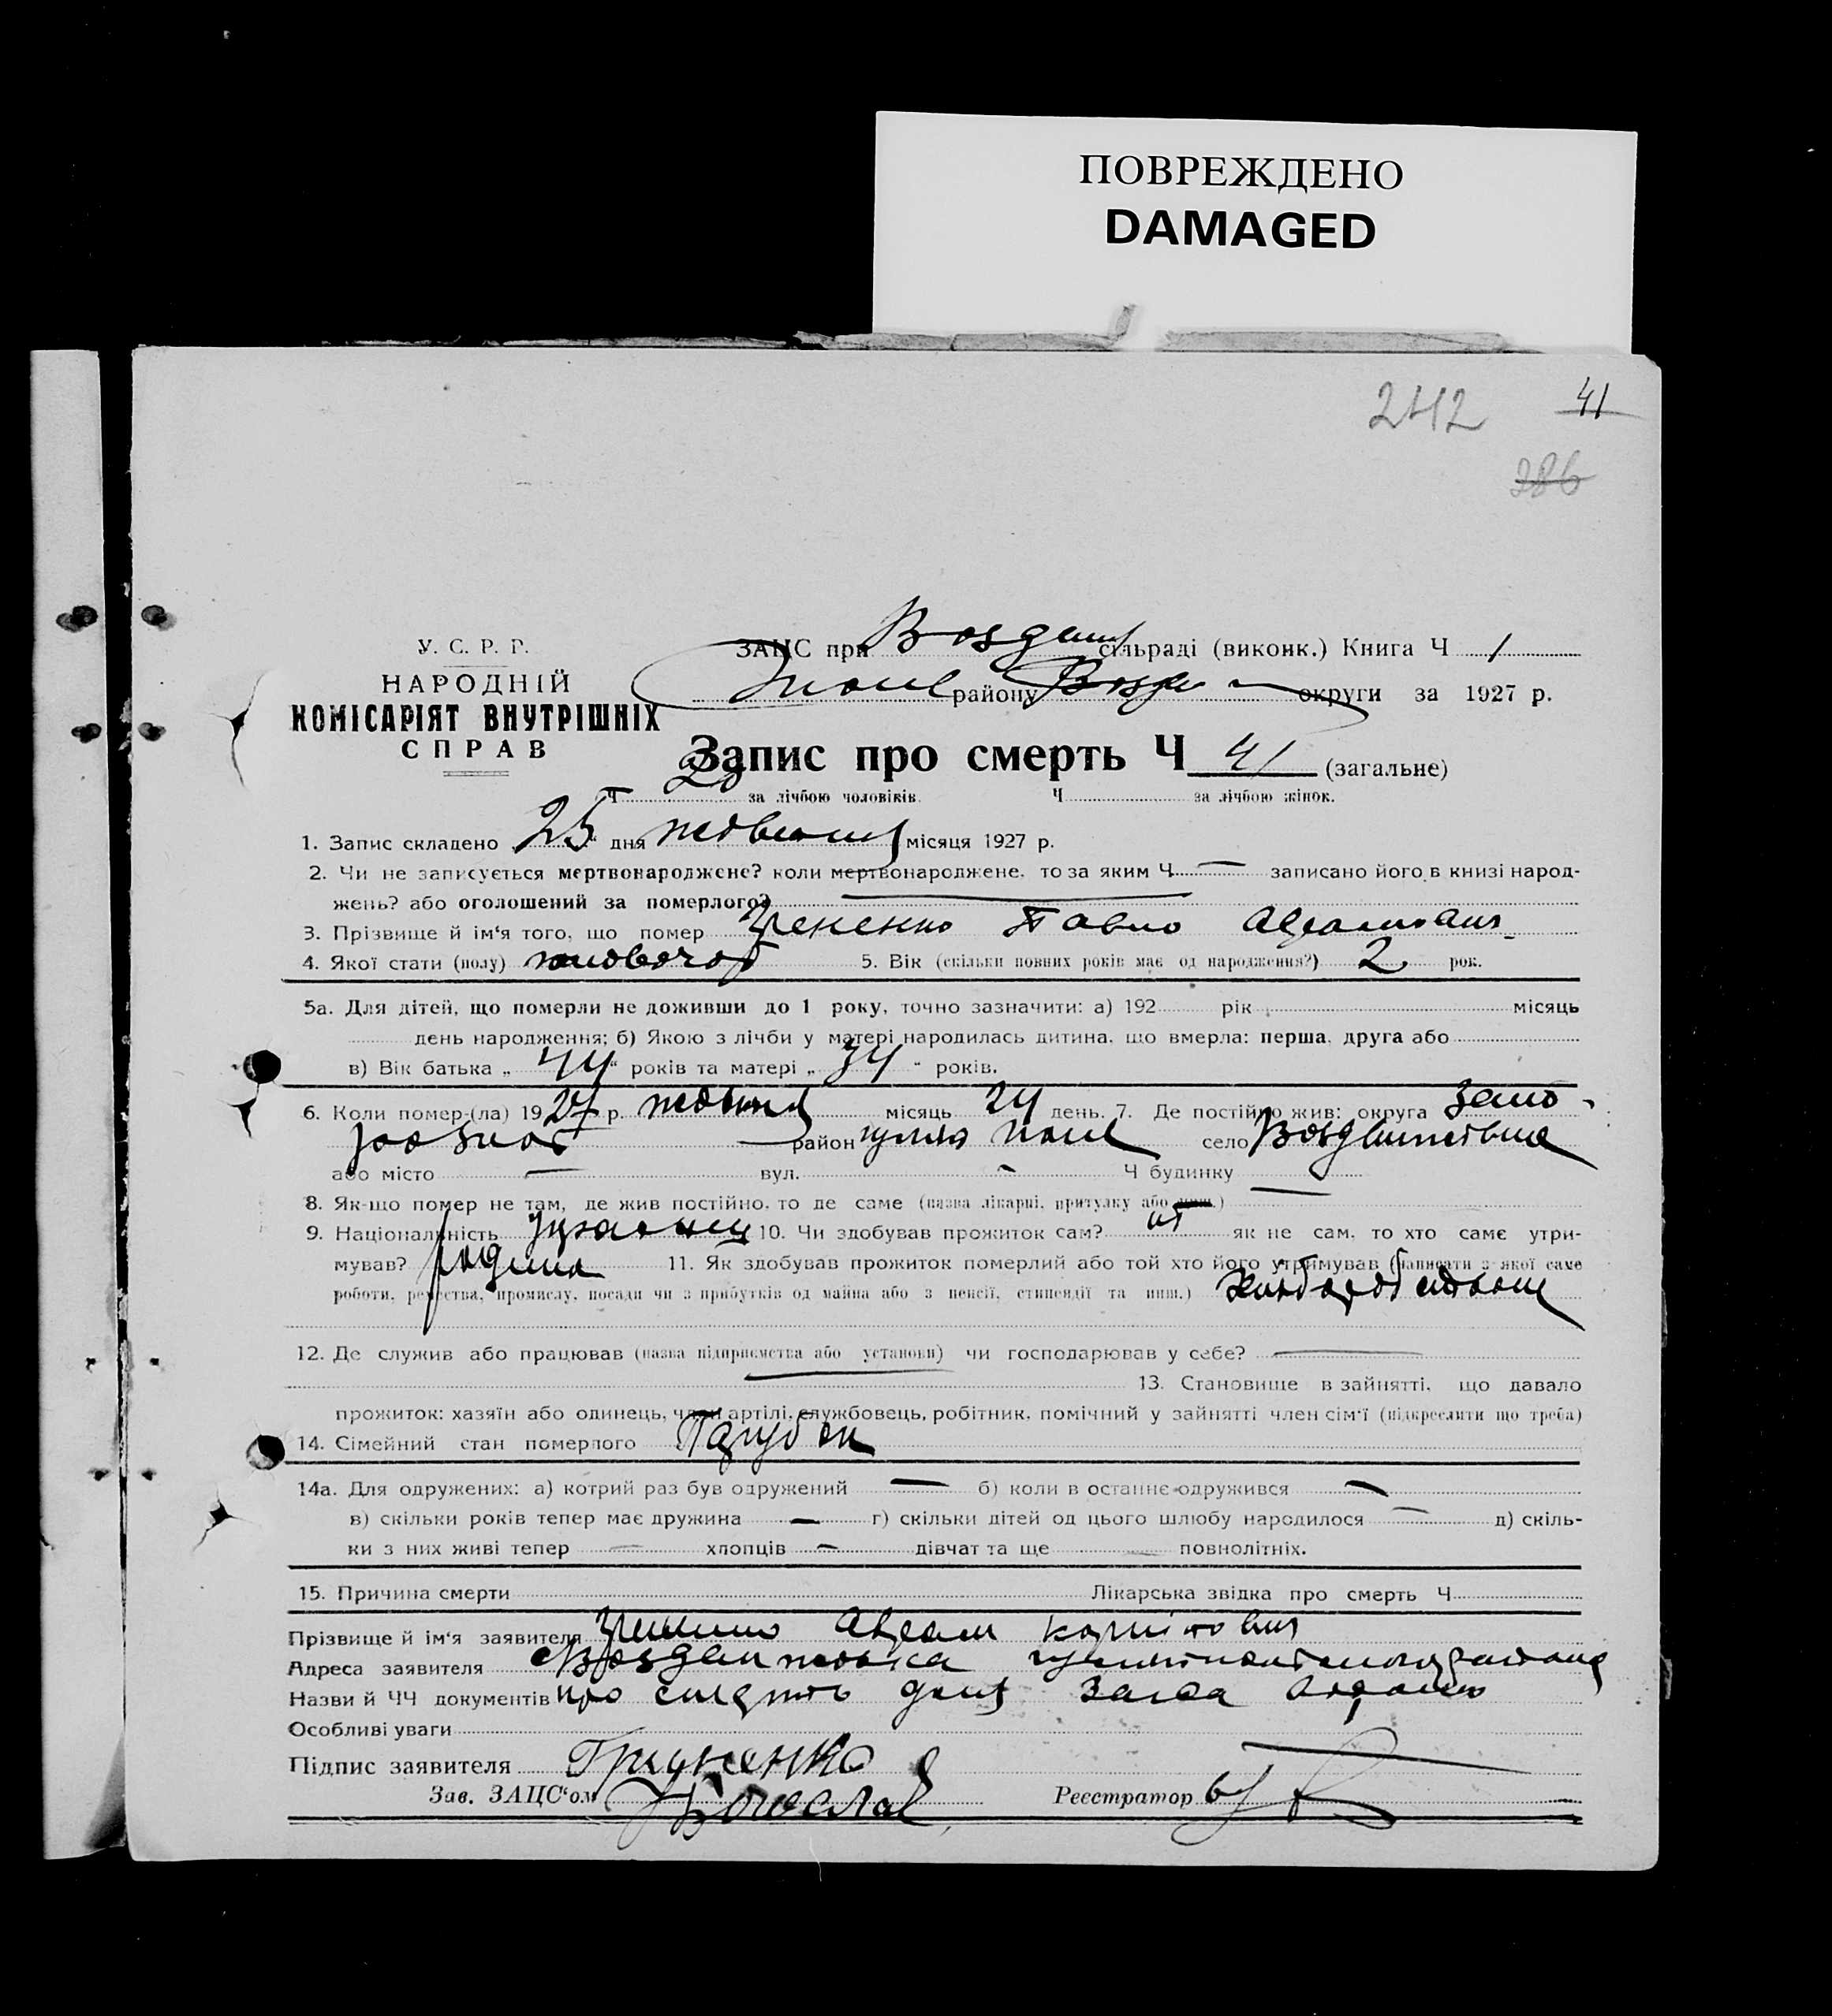 ПОВРЕЖДЕНО
DAMAGED
242 41
386
У. С. Р. Р.
НАРОДНІЙ
КОМІСАРІЯТ ВНУТРІШНІХ
СПРАВ
ЗАЦС при сільраді (виконк.) Книга Ч 1
району округи за 1927 р.
Запис про смерть Ч 41 (загальне)
Ч 20 за лічбою чоловіків. Ч за лічбою жінок.
1. Запис складено 25 " дня жовтня місяця 1927 р.
2. Чи не записується мертвонароджене? коли мертвонароджене, то за яким Ч — записано його в книзі народ-
жень? або оголошений за померлого?
3. Прізвище й ім'я того, що помер Павло
4. Якої стати (полу) 5. Вік (скільки повних років має од народження?) 2 рок.
5а. Для дітей, що померли не доживши до 1 року, точно зазначити: а) 192 рік місяць
день народження; б) Якою з лічби у матері народилась дитина, що вмерла: перша, друга або
в) Вік батька „ 44 " років та матері „ 34 " років.
6. Коли помер-(ла) 1927 р. жовтня місяць 24 день. 7. Де постійно жив: округа Запо-
район гуляй поле село
або місто — вул. - Ч будинку —
8. Як-що помер не там, де жив постійно, то де саме (назва лікарні, притулку або инш.)
9. Національність 10. Чи здобував прожиток сам? ні як не сам, то хто саме утри-
мував? родина 11. Як здобував прожиток померлий або той хто його утримував (написати з якої саме
роботи, ремества, промислу, посади чи з прибутків од майна або з пенсії, стипендії та инш.)
12. Де служив або працював (назва підприємства або установи) чи господарював у себе? —
13. Становище в зайнятті, що давало
прожиток: хазяїн або одинець, член артілі, службовець, робітник, помічний у зайнятті член сім'ї (підкреслити що треба)
14. Сімейний стан померлого Парубок
14а. Для одружених: а) котрий раз був одружений — б) коли в останнє одружився —
в) скільки років тепер має дружина — г) скільки дітей од цього шлюбу народилося — д) скіль-
ки з них живі тепер — хлопців — дівчат та ще — повнолітніх.
15. Причина смерти Лікарська звідка про смерть Ч
Прізвище й ім'я заявителя
Адреса заявителя
Назви й ЧЧ документів про смерть
Особливі уваги
Підпис заявителя
Зав. ЗАЦС'ом Реєстратор